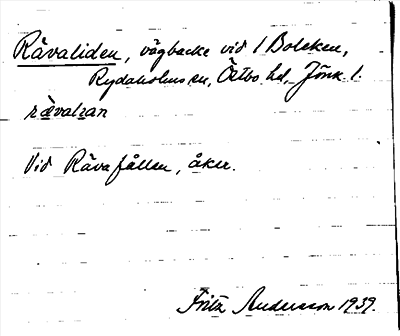 Rävaliden, vägbacke vid 1 Bolcken,
Rydaholms sn, Östbo hd, Jönk. l.
rävalian
Vid Rävafållen, åker.
Fritz Andersson 1939.